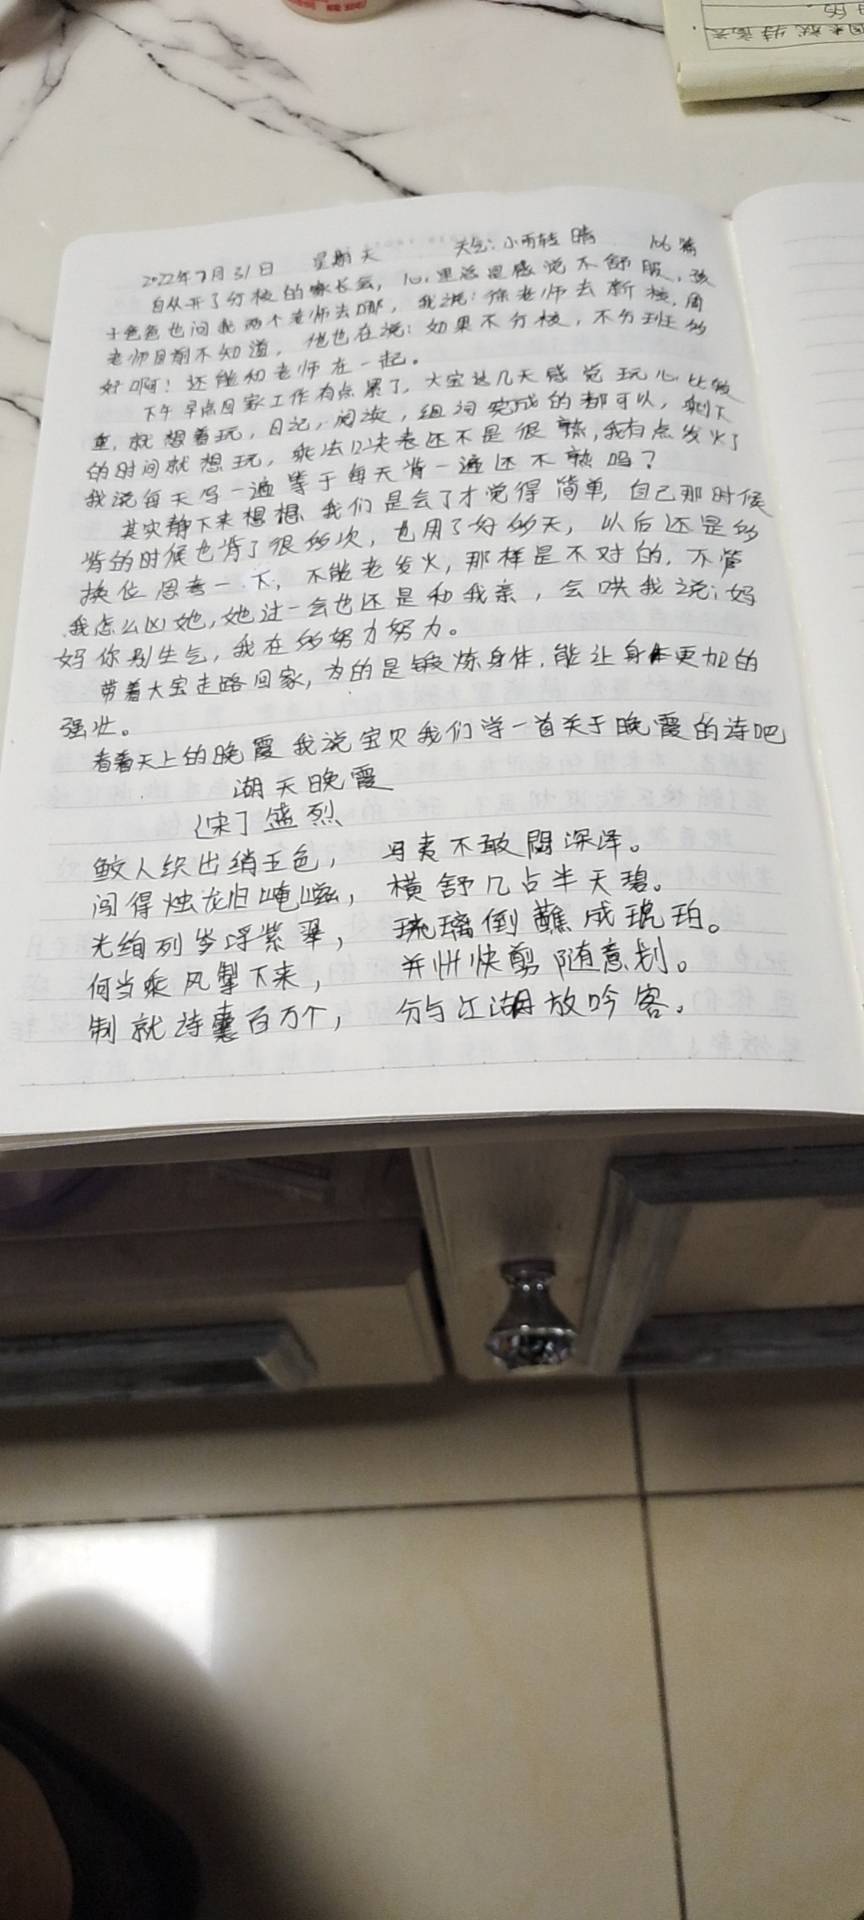 2022年7月31日 星期天 天气:小雨转晴 106篇
自从开了分校的家长会,心里总是感觉不舒服,孩
子爸爸也问我两个老师去哪,我说:徐老师去新校,周
老师目前不知道,他也在说:如果不分校,不分班多
好啊!还能和老师在一起。
下午早点回家工作有点累了,大宝这几天感觉玩心比较
重,就想着玩,日记,阅读,组词完成的都可以,剩下
的时间就想玩,乘法口决表还不是很熟,我有点发火了
我说每天写一遍等于每天背一遍还不熟吗?
其实静下来想想我们是会了才觉得简单,自己那时候
背的时候也背了很多次,也用了好多天,以后还是多
换位思考一下,不能老发火,那样是不对的,不管
我怎么凶她,她过一会也还是和我亲,会哄我说:妈
妈你别生气,我在多努力努力。
带着大宝走路回家,为的是锻炼身体,能让身体更加的
强壮。
看着天上的晚霞我说宝贝我们学一首关于晚霞的诗吧
湖天晚霞
〔宋〕盛烈
鲛人织出绡五色,冯夷不敢閟深泽。
闯得烛龙归崦嵫,横舒几占半天碧。
光绚列岑浮紫翠,琉璃倒蘸成琥珀。
何当乘风掣下来,并州快剪随意划。
制就诗囊百万个,分与江湖放吟客。